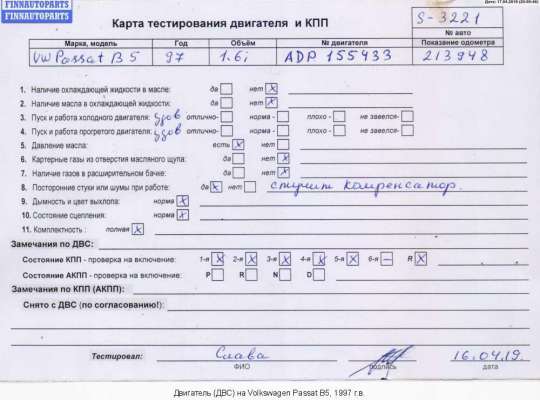 FINNAUTOPARTS
FINNAUTOPARTS
Дата: 17.04.2019
Карта тестирования двигателя и КПП
S-3221
№ авто
Марка, модель Год Объём № двигателя Показание одометра
VW Passat B5 97 1.6i ADP 155433 213948
1. Наличие охлаждающей жидкости в масле: да нет X
2. Наличие масла в охлаждающей жидкости: да нет X
3. Пуск и работа холодного двигателя: удов отлично- норма - плохо - не завелся-
4. Пуск и работа прогретого двигателя: удов отлично- норма - плохо - не завелся-
5. Давление масла: есть X нет
6. Картерные газы из отверстия масляного щупа: да нет X
7. Наличие газов в расширительном бачке: да нет X
8. Посторонние стуки или шумы при работе: да X нет стучит компенсатор.
9. Дымность и цвет выхлопа: норма X
10. Состояние сцепления: норма X
11. Комплектность: полная X
Замечания по ДВС:
Состояние КПП - проверка на включение: 1-я X 2-я X 3-я X 4-я X 5-я X 6-я – R X
Состояние АКПП - проверка на включение: P R N D
Замечания по КПП (АКПП):
Снято с ДВС (по согласованию!):
Тестировал: Слава 16.04.19.
ФИО подпись дата
Двигатель (ДВС) на Volkswagen Passat B5, 1997 г.в.